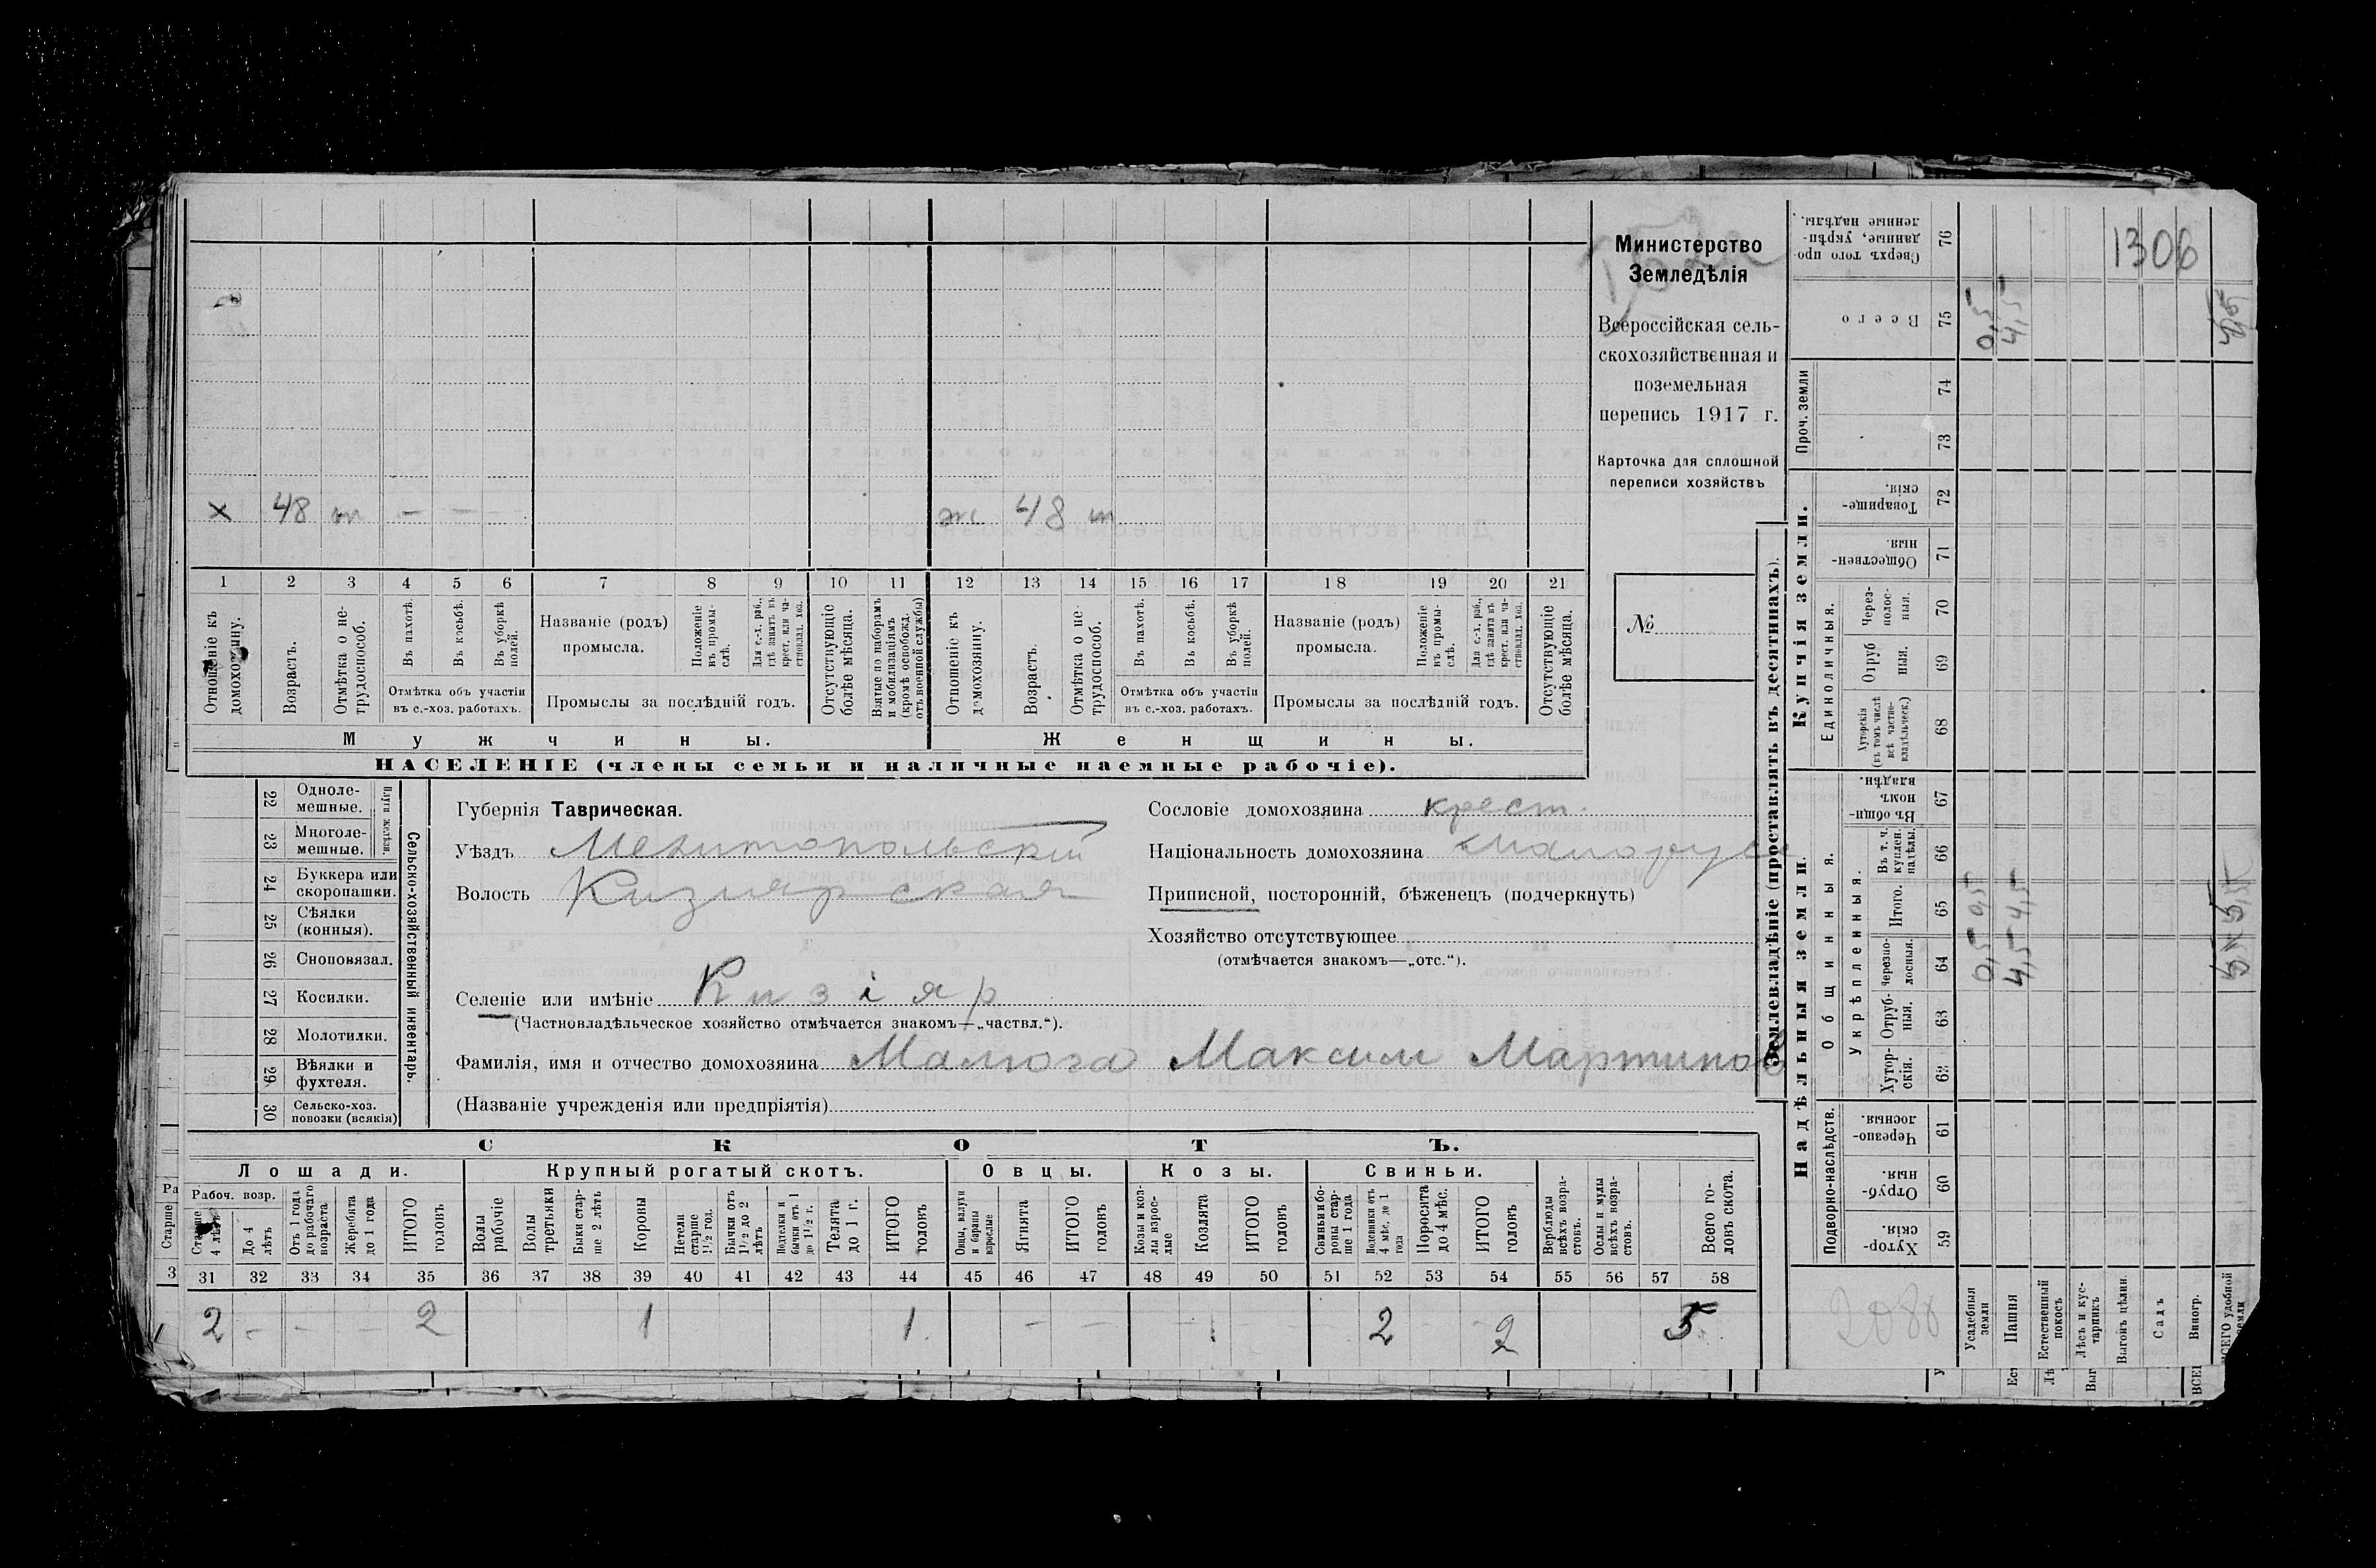 Министерство
Земледѣлія
Всероссійская сель-
скохозяйственная и
поземельная
перепись 1917 г.
Карточка для сплошной
переписи хозяйствъ
№
х 48 — — ж 48
1 2 3 4 5 6 7 8 9 10 11 12 13 14 15 16 17 18 19 20 21
Отношеніе къ домохозяину.
Возрастъ.
Отмѣтка о не-
трудоспособ.
Въ пахотѣ.
Въ косьбѣ.
Въ уборкѣ
полей.
Отмѣтка объ участіи
въ с.-хоз. работахъ.
Названіе (родъ)
промысла.
Положеніе
въ промы-
слѣ.
Для с.-х. раб.,
гдѣ занятъ въ
крест. или ча-
стновлад. хоз.
Промыслы за послѣдній годъ.
Отсутствующіе
болѣе мѣсяца.
Взятые по наборамъ
и мобилизаціямъ
(кромѣ освобожд.
отъ военной службы)
Отношеніе къ
домохозяину.
Возрастъ.
Отмѣтка о не-
трудоспособ.
Въ пахотѣ.
Въ косьбѣ.
Въ уборкѣ
полей.
Отмѣтка объ участіи
въ с.-хоз. работахъ.
Названіе (родъ)
промысла.
Положеніе
въ промы-
слѣ.
Для с.-х. раб.,
гдѣ занята въ
крест. или ча-
стновлад. хоз.
Промыслы за послѣдній годъ.
Отсутствующіе
болѣе мѣсяца.
Мужчины. Женщины.
НАСЕЛЕНІЕ (члены семьи и наличные наемные рабочіе).
22 Одноле-
мешные.
23 Многоле-
мешные.
Плуги желѣзн.
24 Буккера или
скоропашки.
25 Сѣялки
(конныя).
26 Сноповязал.
27 Косилки.
28 Молотилки.
29 Вѣялки и
фухтеля.
30 Сельско-хоз.
повозки (всякія)
Сельско-хозяйственный инвентарь.
Губернія Таврическая.
Уѣздъ Мелитопольскій
Волость Кизиярская
Селеніе или имѣніе Кизіяр
(Частновладѣльческое хозяйство отмѣчается знакомъ—„частвл.“).
Фамилія, имя и отчество домохозяина Малюга Максим Мартинов
(Названіе учрежденія или предпріятія)
Сословіе домохозяина крест.
Національность домохозяина малорус
Приписной, посторонній, бѣженецъ (подчеркнуть)
Хозяйство отсутствующее
(отмѣчается знакомъ—„отс.“).
СКОТЪ.
Лошади. Крупный рогатый скотъ. Овцы. Козы. Свиньи.
Рабоч. возр.
Старше
4 лѣтъ
До 4
лѣтъ
Отъ 1 года
до рабочаго
возраста
Жеребята
до 1 года
ИТОГО
головъ
Волы
рабочіе
Волы
третьяки
Быки стар-
ше 2 лѣтъ
Коровы
Нетели
старше
1½ год.
Бычки отъ
1½ до 2
лѣтъ
Подтелки и
бычки отъ 1
до 1½ г.
Телята
до 1 г.
ИТОГО
головъ
Овцы, валухи
и бараны
взрослые
Ягнята
ИТОГО
головъ
Козы и коз-
лы взрос-
лые
Козлята
ИТОГО
головъ
Свиньи и бо-
ровы стар-
ше 1 года
Подсвинки отъ
4 мѣс. до 1
года
Поросята
до 4 мѣс.
ИТОГО
головъ
Верблюды
всѣхъ возра-
стовъ.
Ослы и мулы
всѣхъ возра-
стовъ.
Всего го-
ловъ скота.
31 32 33 34 35 36 37 38 39 40 41 42 43 44 45 46 47 48 49 50 51 52 53 54 55 56 57 58
2 - - - 2 1 1. - - - 2 - 2 5
Землевладѣніе (проставлять въ десятинахъ).
Купчія земли.
Надѣльныя земли.
Сверхъ того про-
данные, укрѣп-
ленные надѣлы. 76
1306
Всего 75 0,5 4,5
Проч. земли
74
73
Товарище-
скія. 72
Обществен-
ныя. 71
Единоличныя.
Через-
полос-
ныя. 70
Отруб
ныя. 69
Хуторскія
(въ томъ числѣ
всѣ частно-
владѣльческ.) 68
Общинныя.
Въ общи-
номъ
владѣн. 67
Укрѣпленныя.
Въ т. ч.
куплен.
надѣлы. 66
Итого. 65 0,5 4,5
Черезпо-
лосныя. 64 0,5 4,5
Отруб-
ныя. 63
Хутор-
скія. 62
Подворно-наслѣдств.
Черезпо-
лосныя. 61
Отруб-
ныя. 60
Хутор-
скія. 59
Усадебныя
земли
Пашня
Естественный
покосъ
Лѣсъ и кус-
тарникъ
Выгонъ цѣлин.
Садъ
Виногр.
ВСЕГО удобной
земли